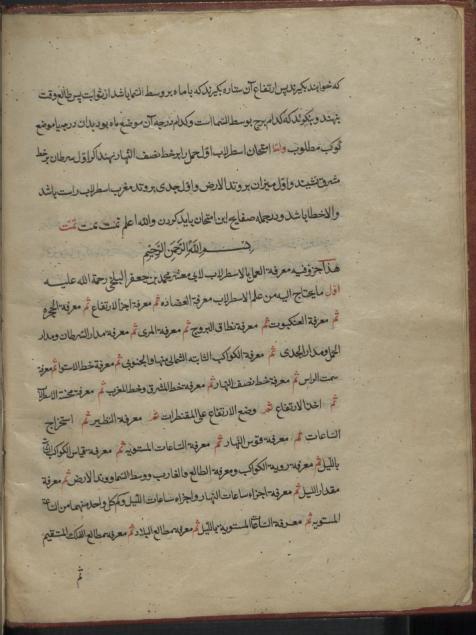 که خواهند بگیرند پس ارتفاع آن ستاره بگیرند که با ماه بر وسط السما باشد از ثوابت پس طالع وقت
بنهند و بنگرند که کدام برج بوسط السماست و کدام درجه آن موضع ماه بود بدان درجه یا موضع
کوکب مطلوب واما امتحان اسطرلاب اول حمل را بر خط نصف النهار نهند اکر اول سرطان بر خط
مشرق نشیند و اول میزان بر وتد الارض و اول جدی بر وتد مغرب اسطرلاب راست باشد
والا خطا باشد و در جمله صفایح این امتحان باید کردن والله اعلم تمت تمت تمت
بسم الله الرحمن الرحیم
هذا جزو فیه معرفة العمل بالاسطرلاب لابی معشر محمد بن جعفر البلخی رحمة الله علیه
اول ما یحتاج الیه من علم الاسطرلاب معرفة العضاده ثم معرفة اجزا الارتفاع ثم معرفة الحجره
ثم معرفة العنکبوت ثم معرفة نطاق البروج ثم معرفة المری ثم معرفة مدار السرطان ومدار
الحمل ومدار الجدی ثم معرفة الکواکب الثابته الشمالی منها والجنوبی ثم معرفة خط الاستوا ثم معرفة
سمت الراس ثم معرفة خط نصف النهار ثم معرفة خط المشرق وخط المغرب ثم معرفة محنة الاسطرلاب
ثم اخذ الارتفاع ثم وضع الارتفاع علی المقنطرات ثم معرفة النظیر ثم استخراج
الساعات ثم معرفة قوس النهار ثم معرفة الساعات المستویه ثم معرفة قیاس الکواکب
باللیل ثم معرفة رویة الکواکب ومعرفة الطالع والغارب ووسط السما ووتد الارض ثم معرفة
مقدار اللیل ثم معرفة اجزاء ساعات النهار واجزاء ساعات اللیل ولکل واحد منهما من
المستویه ثم معرفة الساعات المستویة باللیل ثم معرفة مطالع البلاد ثم معرفة مطالع الفلک المستقیم
ثم